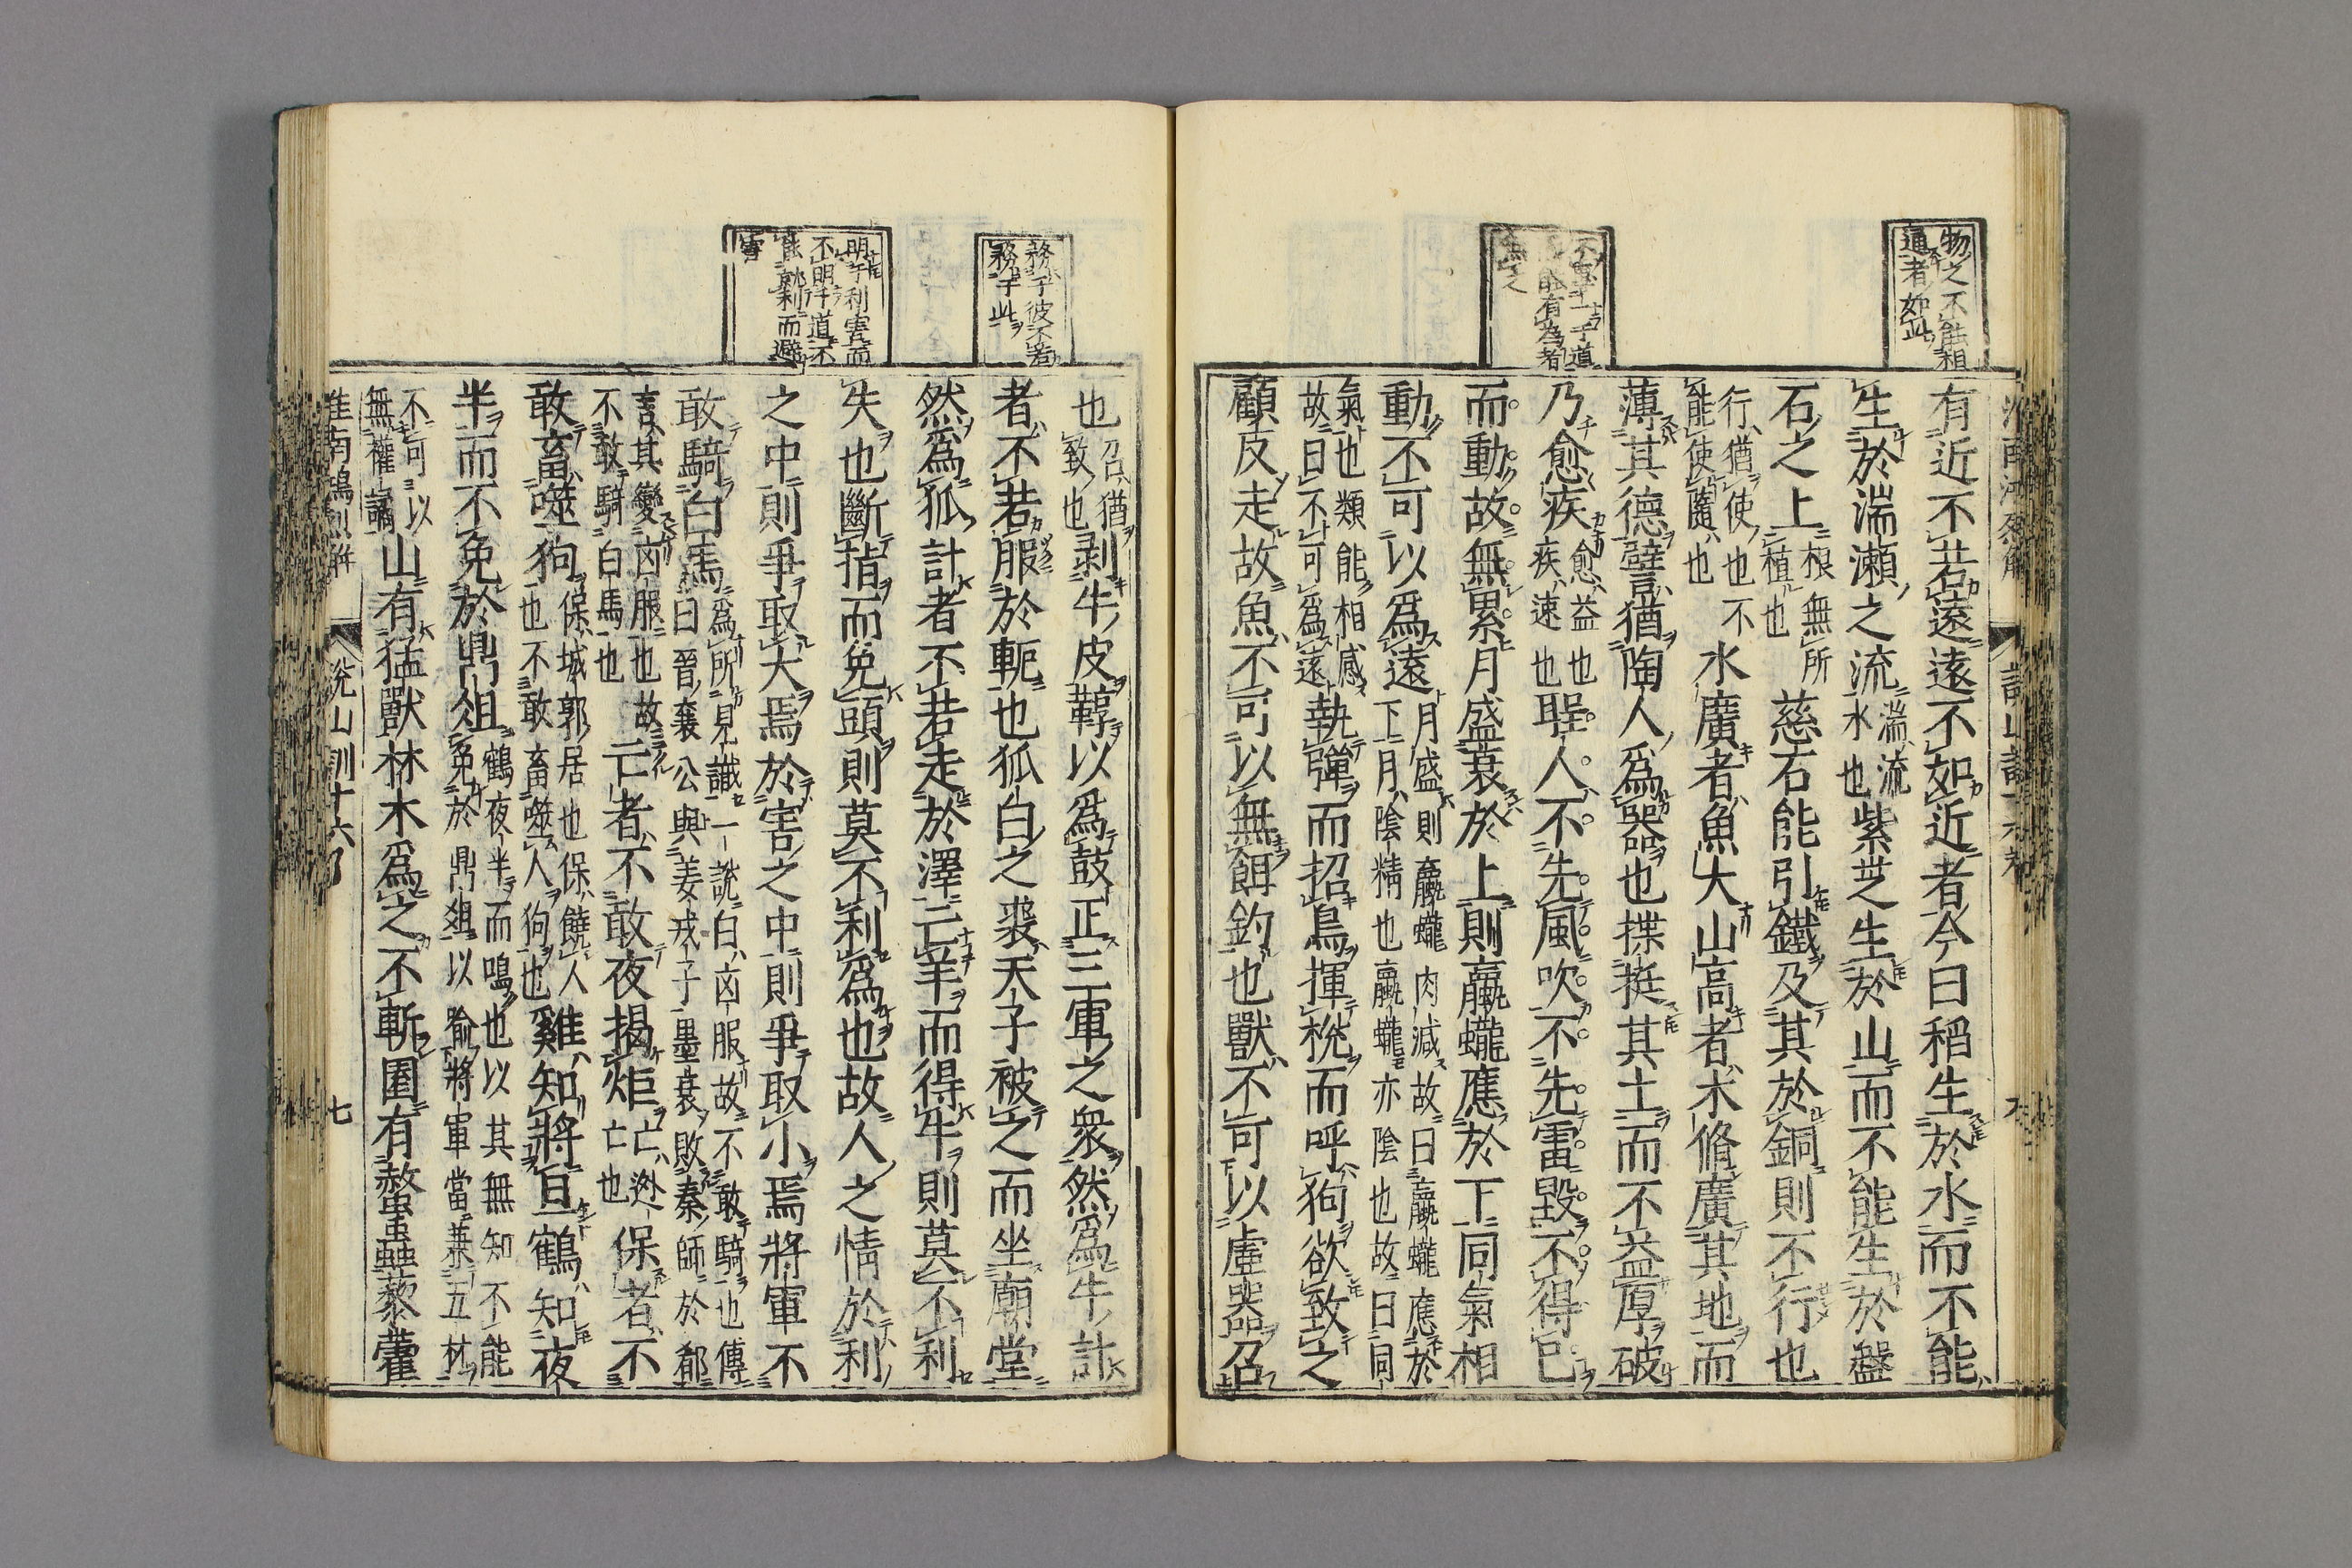 物之不能相
通者如此
有近不若遠遠不如近者今曰稻生於水而不能
生於湍瀬之流湍流水也紫芝生於山而不能生於盤
石之上根無所植也慈石能引鐵及其於銅則不行也
行猶使也不能使隨也水廣者魚大山高者木脩廣其地而
薄其德譬猶陶人爲器也揲挻其土而不益厚破
乃愈疾愈益也疾速也聖人不先風吹不先雷毀不得已
而動故無累月盛衰於上則蠃蠬應於下同氣相
動不可以爲遠月盛則蠃蠬肉減故曰蠃蠬應於下月陰精也蠃蠬亦陰也故曰同
氣也類能相感故曰不可爲遠執彈而招鳥揮梲而呼狗欲致之
顧反走故魚不可以無餌釣也獸不可以虛器召
務于彼不若
務于此
明于利害而
不明于道不
能就利而避
害
也召猶致也剥牛皮鞟以爲鼓正三軍之衆然爲牛計
者不若服於軛也狐白之裘天子被之而坐廟堂
然爲狐計者不若走於澤亡羊而得牛則莫不利
失也斷指而免頭則莫不利爲也故人之情於利
之中則爭取大焉於害之中則爭取小焉將軍不
敢騎白馬爲所見識一說白凶服故不敢騎也傳曰晉襄公與姜戎子墨衰敗秦師於郩
言其變凶服也故不敢騎白馬也亡者不敢夜揭炬亡逃亡也保者不
敢畜噬狗保城郭居也保饒人也不敢畜噬人狗也雞知將旦鶴知夜
半而不免於鼎俎鶴夜半而鳴也以其無知不能免於鼎俎以喻將軍當兼五材
不可以無權譎山有猛獸林木爲之不斬園有螫蟲藜藿
淮南鴻烈解 說山訓十六 七